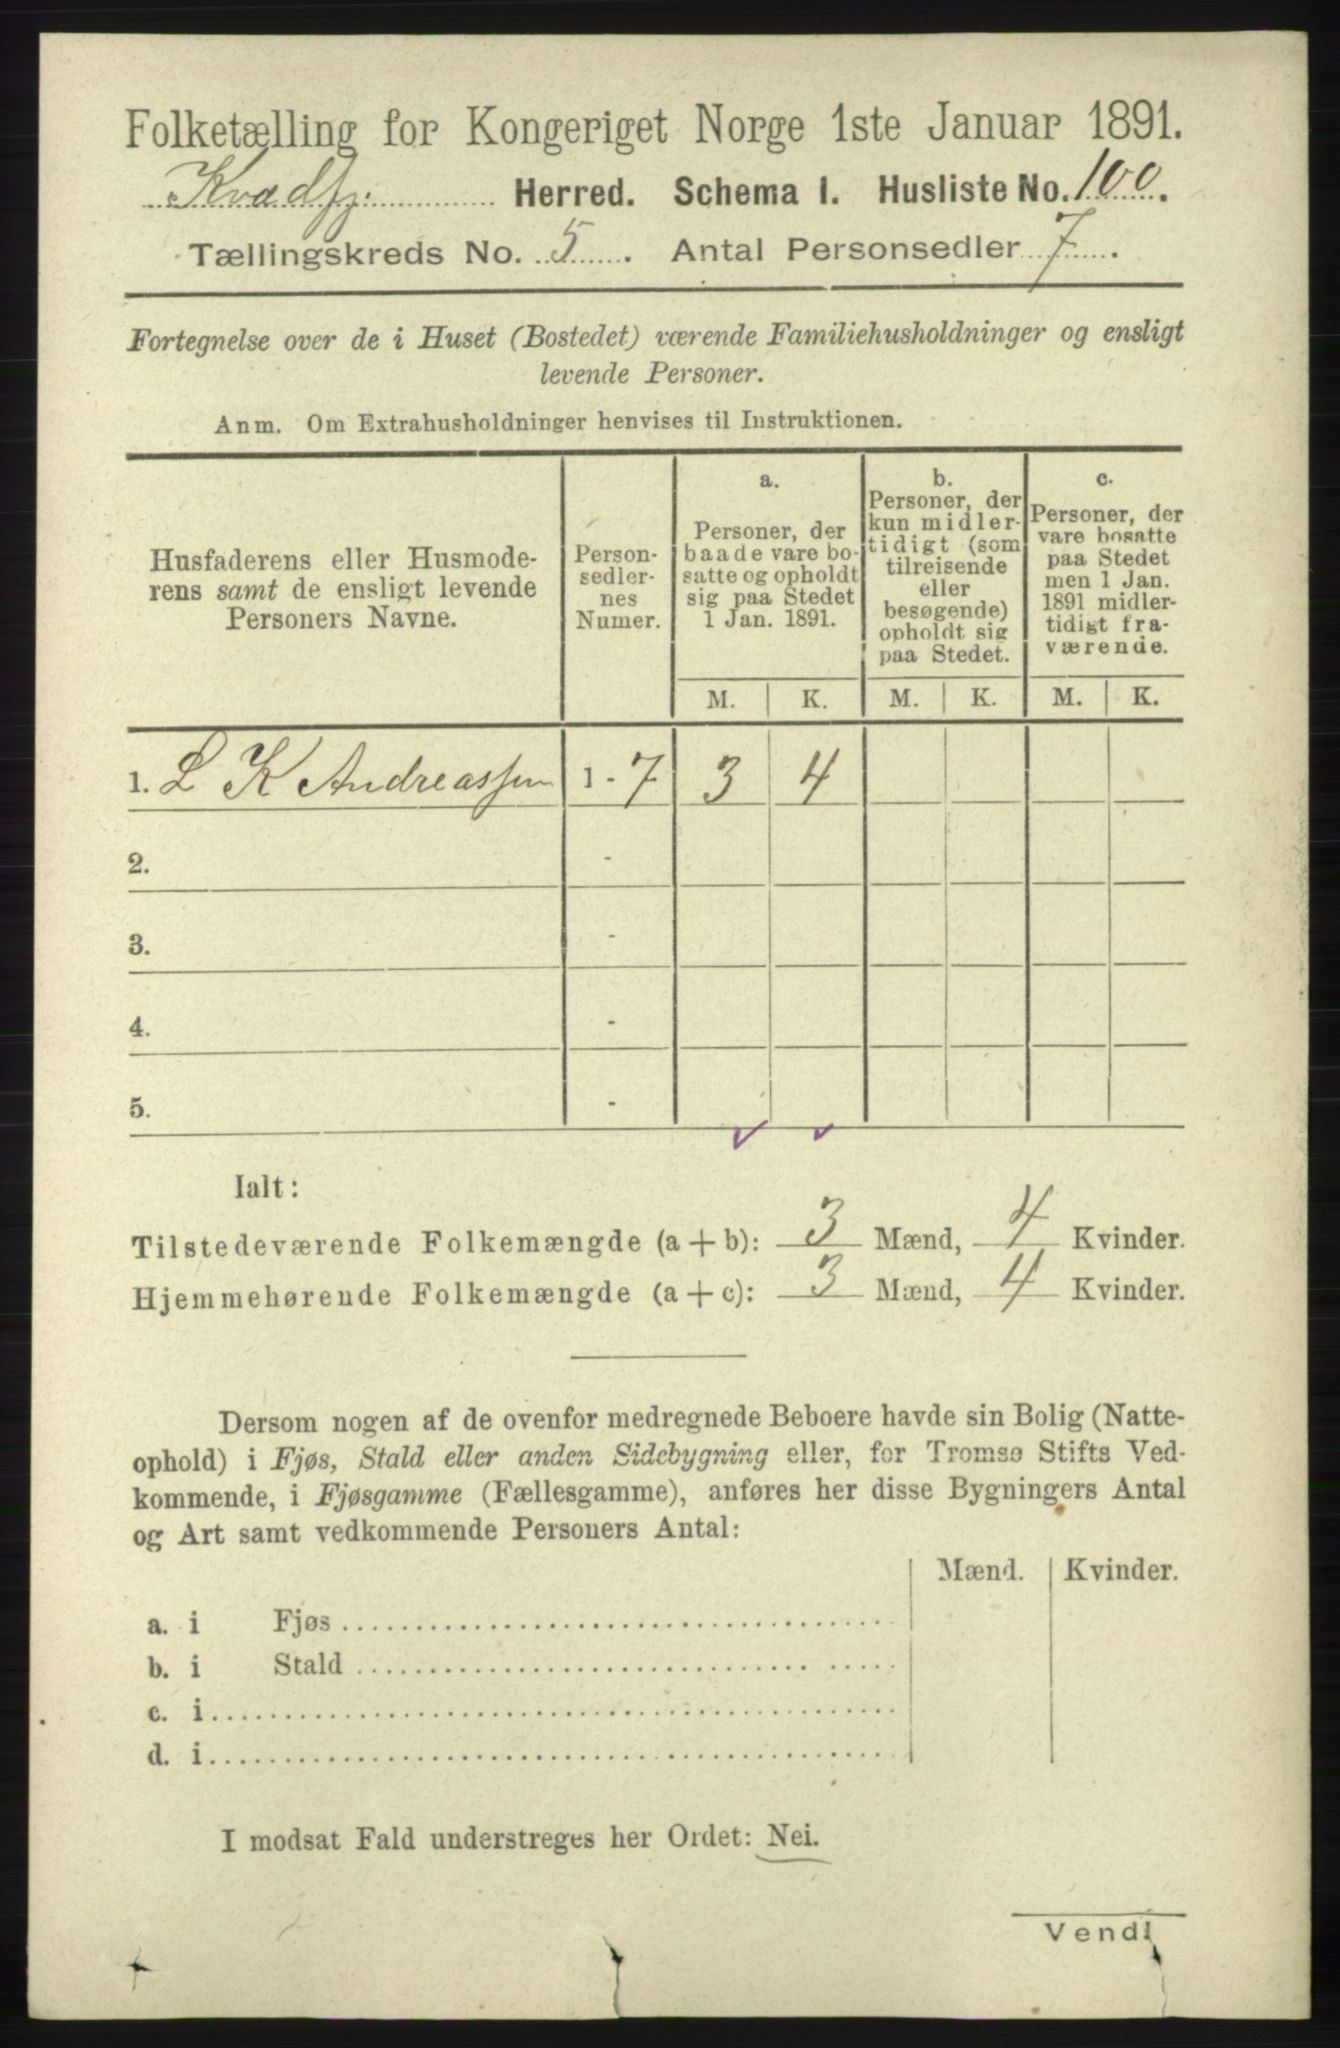 Folketælling for Kongeriget Norge 1ste Januar 1891.
Kvædfj. Herred. Schema I. Husliste No. 100.
Tællingskreds No. 5. Antal Personsedler 7.
Fortegnelse over de i Huset (Bostedet) værende Familiehusholdninger og ensligt
levende Personer.
Anm. Om Extrahusholdninger henvises til Instruktionen.
Husfaderens eller Husmode-
rens samt de ensligt levende
Personers Navne.
Person-
sedler-
nes
Numer.
a.
Personer, der
baade vare bo-
satte og opholdt
sig paa Stedet
1 Jan. 1891.
b.
Personer, der
kun midler-
tidigt (som
tilreisende
eller
besøgende)
opholdt sig
paa Stedet.
c.
Personer, der
vare bosatte
paa Stedet
men 1 Jan.
1891 midler-
tidigt fra-
værende.
M. K. M. K. M. K.
1. L K Andreassen 1 - 7 3 4
2. -
3. -
4. -
5. -
Ialt:
Tilstedeværende Folkemængde (a + b): 3 Mænd, 4 Kvinder.
Hjemmehørende Folkemængde (a + c): 3 Mænd, 4 Kvinder.
Dersom nogen af de ovenfor medregnede Beboere havde sin Bolig (Natte-
ophold) i Fjøs, Stald eller anden Sidebygning eller, for Tromsø Stifts Ved-
kommende, i Fjøsgamme (Fællesgamme), anføres her disse Bygningers Antal
og Art samt vedkommende Personers Antal:
Mænd. Kvinder.
a. i Fjøs
b. i Stald
c. i
d. i
I modsat Fald understreges her Ordet: Nei.
Vend!